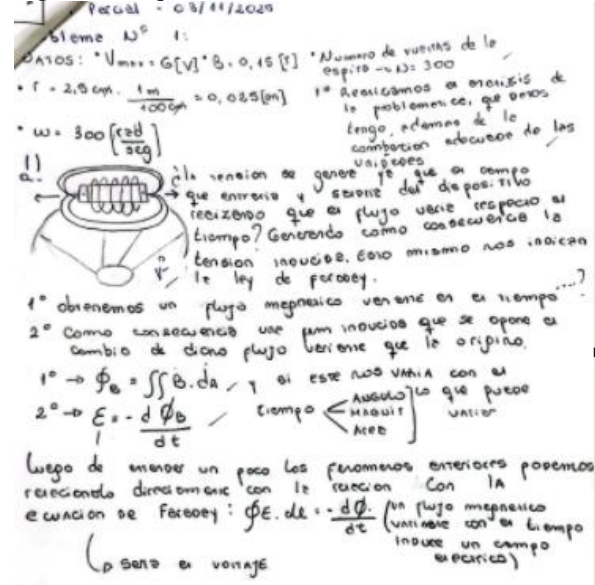 Parcial - 03/11/2025
blema Nº 1:
DATOS: * Vmax = 6[V] * B = 0,15 [T] * Numero de vueltas de la
espira → N = 300
* r = 2,5 cm . 1m / 100cm = 0,025[m]
1º Realizamos el analisis de
la problematica, que datos
tengo, ademas de la
combercion adecuada de las
unidades
* ω = 300 [rad/seg]
1)
a.
¿la tension se genera ya que el campo
que entraria y saldria del dispositivo
realizando que el flujo varie respecto al
tiempo? Generando como consecuencia la
tension inducida. Esto mismo nos indican
la ley de faradey.
1º obtenemos un flujo magnetico variante en el tiempo ....?
2º Como consecuencia una fem inducida que se opone al
cambio de dicho flujo variante que la origino.
1º → ϕB = ∫∫ B. dA y si este nos VARIA con el
tiempo < ANGULO MAGNIT AREA ] lo que puede variar
2º → ε = - d ϕB / dt
Luego de entender un poco los fenomenos anteriores podemos
relacionarlo directamente con la relacion con la
ecuacion de Faradey: ∮E. dl = - dϕ. / dt (un flujo magnetico
variante con el tiempo
induce un campo
electrico)
↳ sera el voltaje